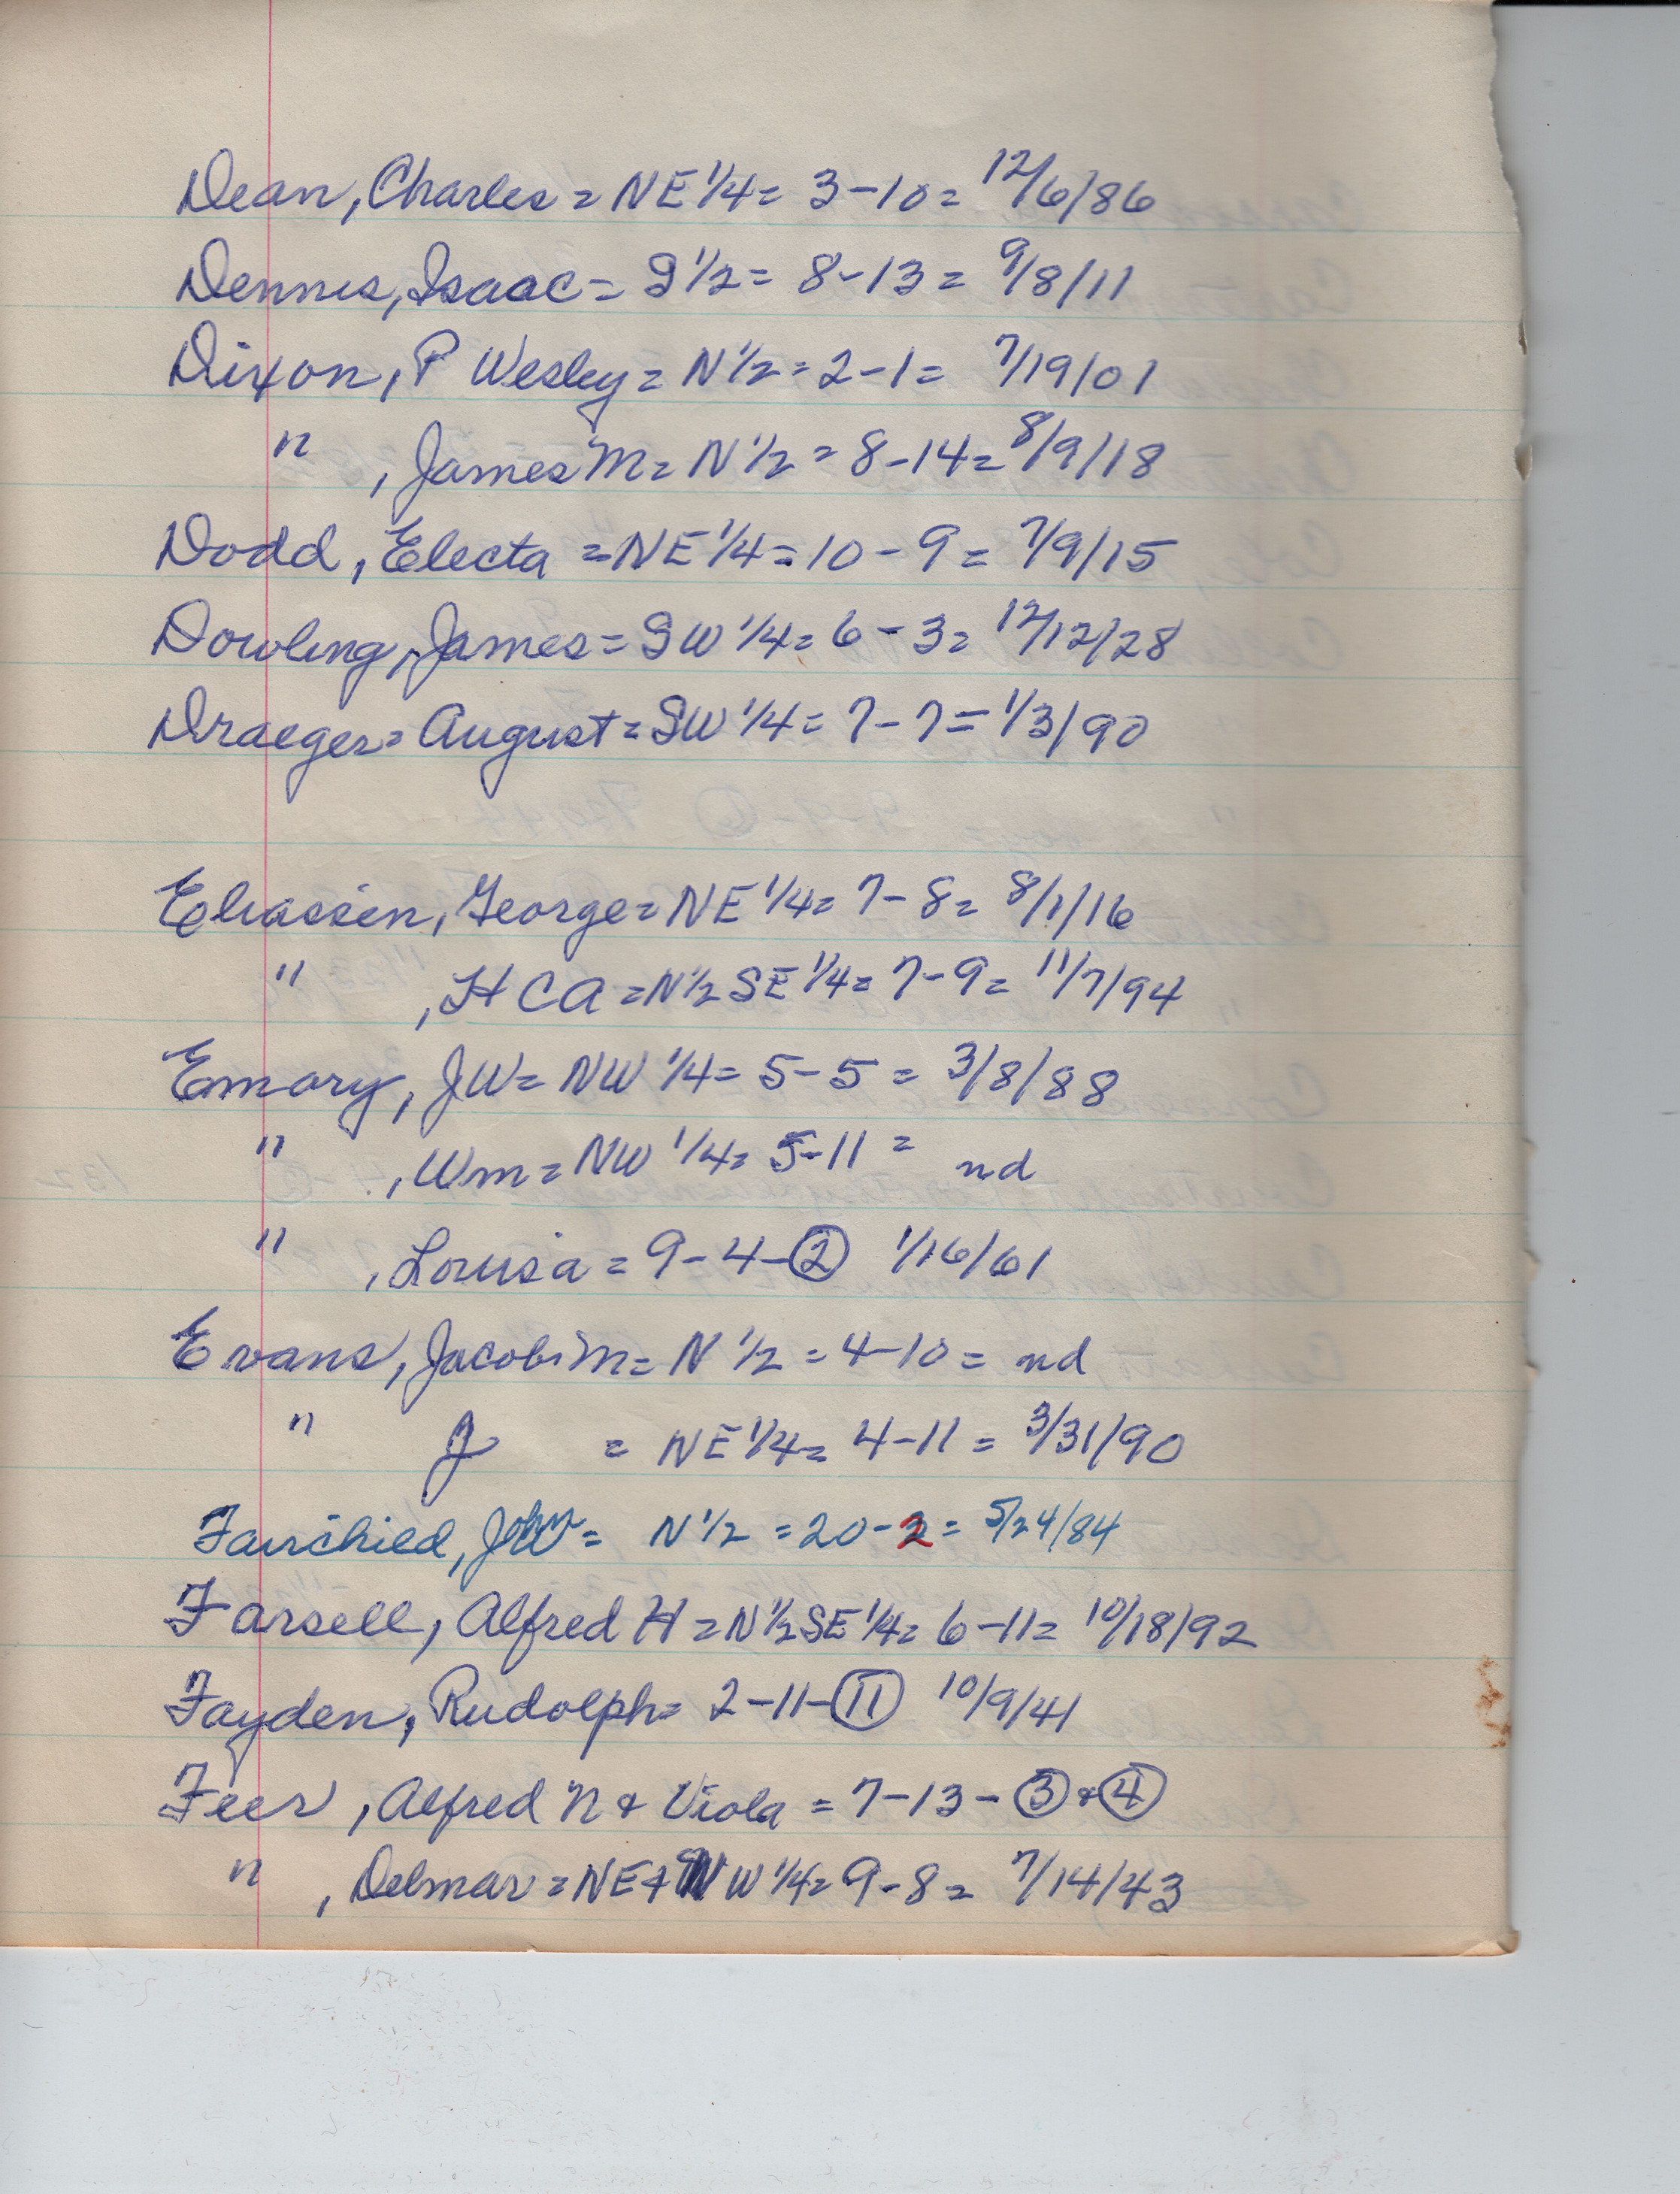 Dean, Charles = NE 1/4 = 3-10 = 12/6/86
Dennis, Isaac = S 1/2 = 8-13 = 9/8/11
Dixon, P Wesley = N 1/2 = 2-1 = 7/19/01
" , James M = N 1/2 = 8-14 = 8/9/18
Dodd, Electa = NE 1/4 = 10-9 = 7/9/15
Dowling, James = SW 1/4 = 6-3 = 12/12/28
Draeger = August = SW 1/4 = 7-7 = 1/3/90
Eliassen, George = NE 1/4 = 7-8 = 8/1/16
" , H C A = N 1/2 SE 1/4 = 7-9 = 11/7/94
Emory, JW = NW 1/4 = 5-5 = 3/8/88
" , Wm = NW 1/4 = 5-11 = nd
" , Louisa = 9-4-② 1/16/61
Evans, Jacob M = N 1/2 = 4-10 = nd
" J = NE 1/4 = 4-11 = 3/31/90
Fairchied, = N 1/2 = 20-2 = 5/24/84
Farsell, Alfred H = N 1/2 SE 1/4 = 6-11 = 10/18/92
Fayden, Rudolph = 2-11-⑪ 10/9/41
Feer, Alfred N & Viola = 7-13-③ & ④
" , Delmar = NE + NW 1/4 = 9-8 = 7/14/43